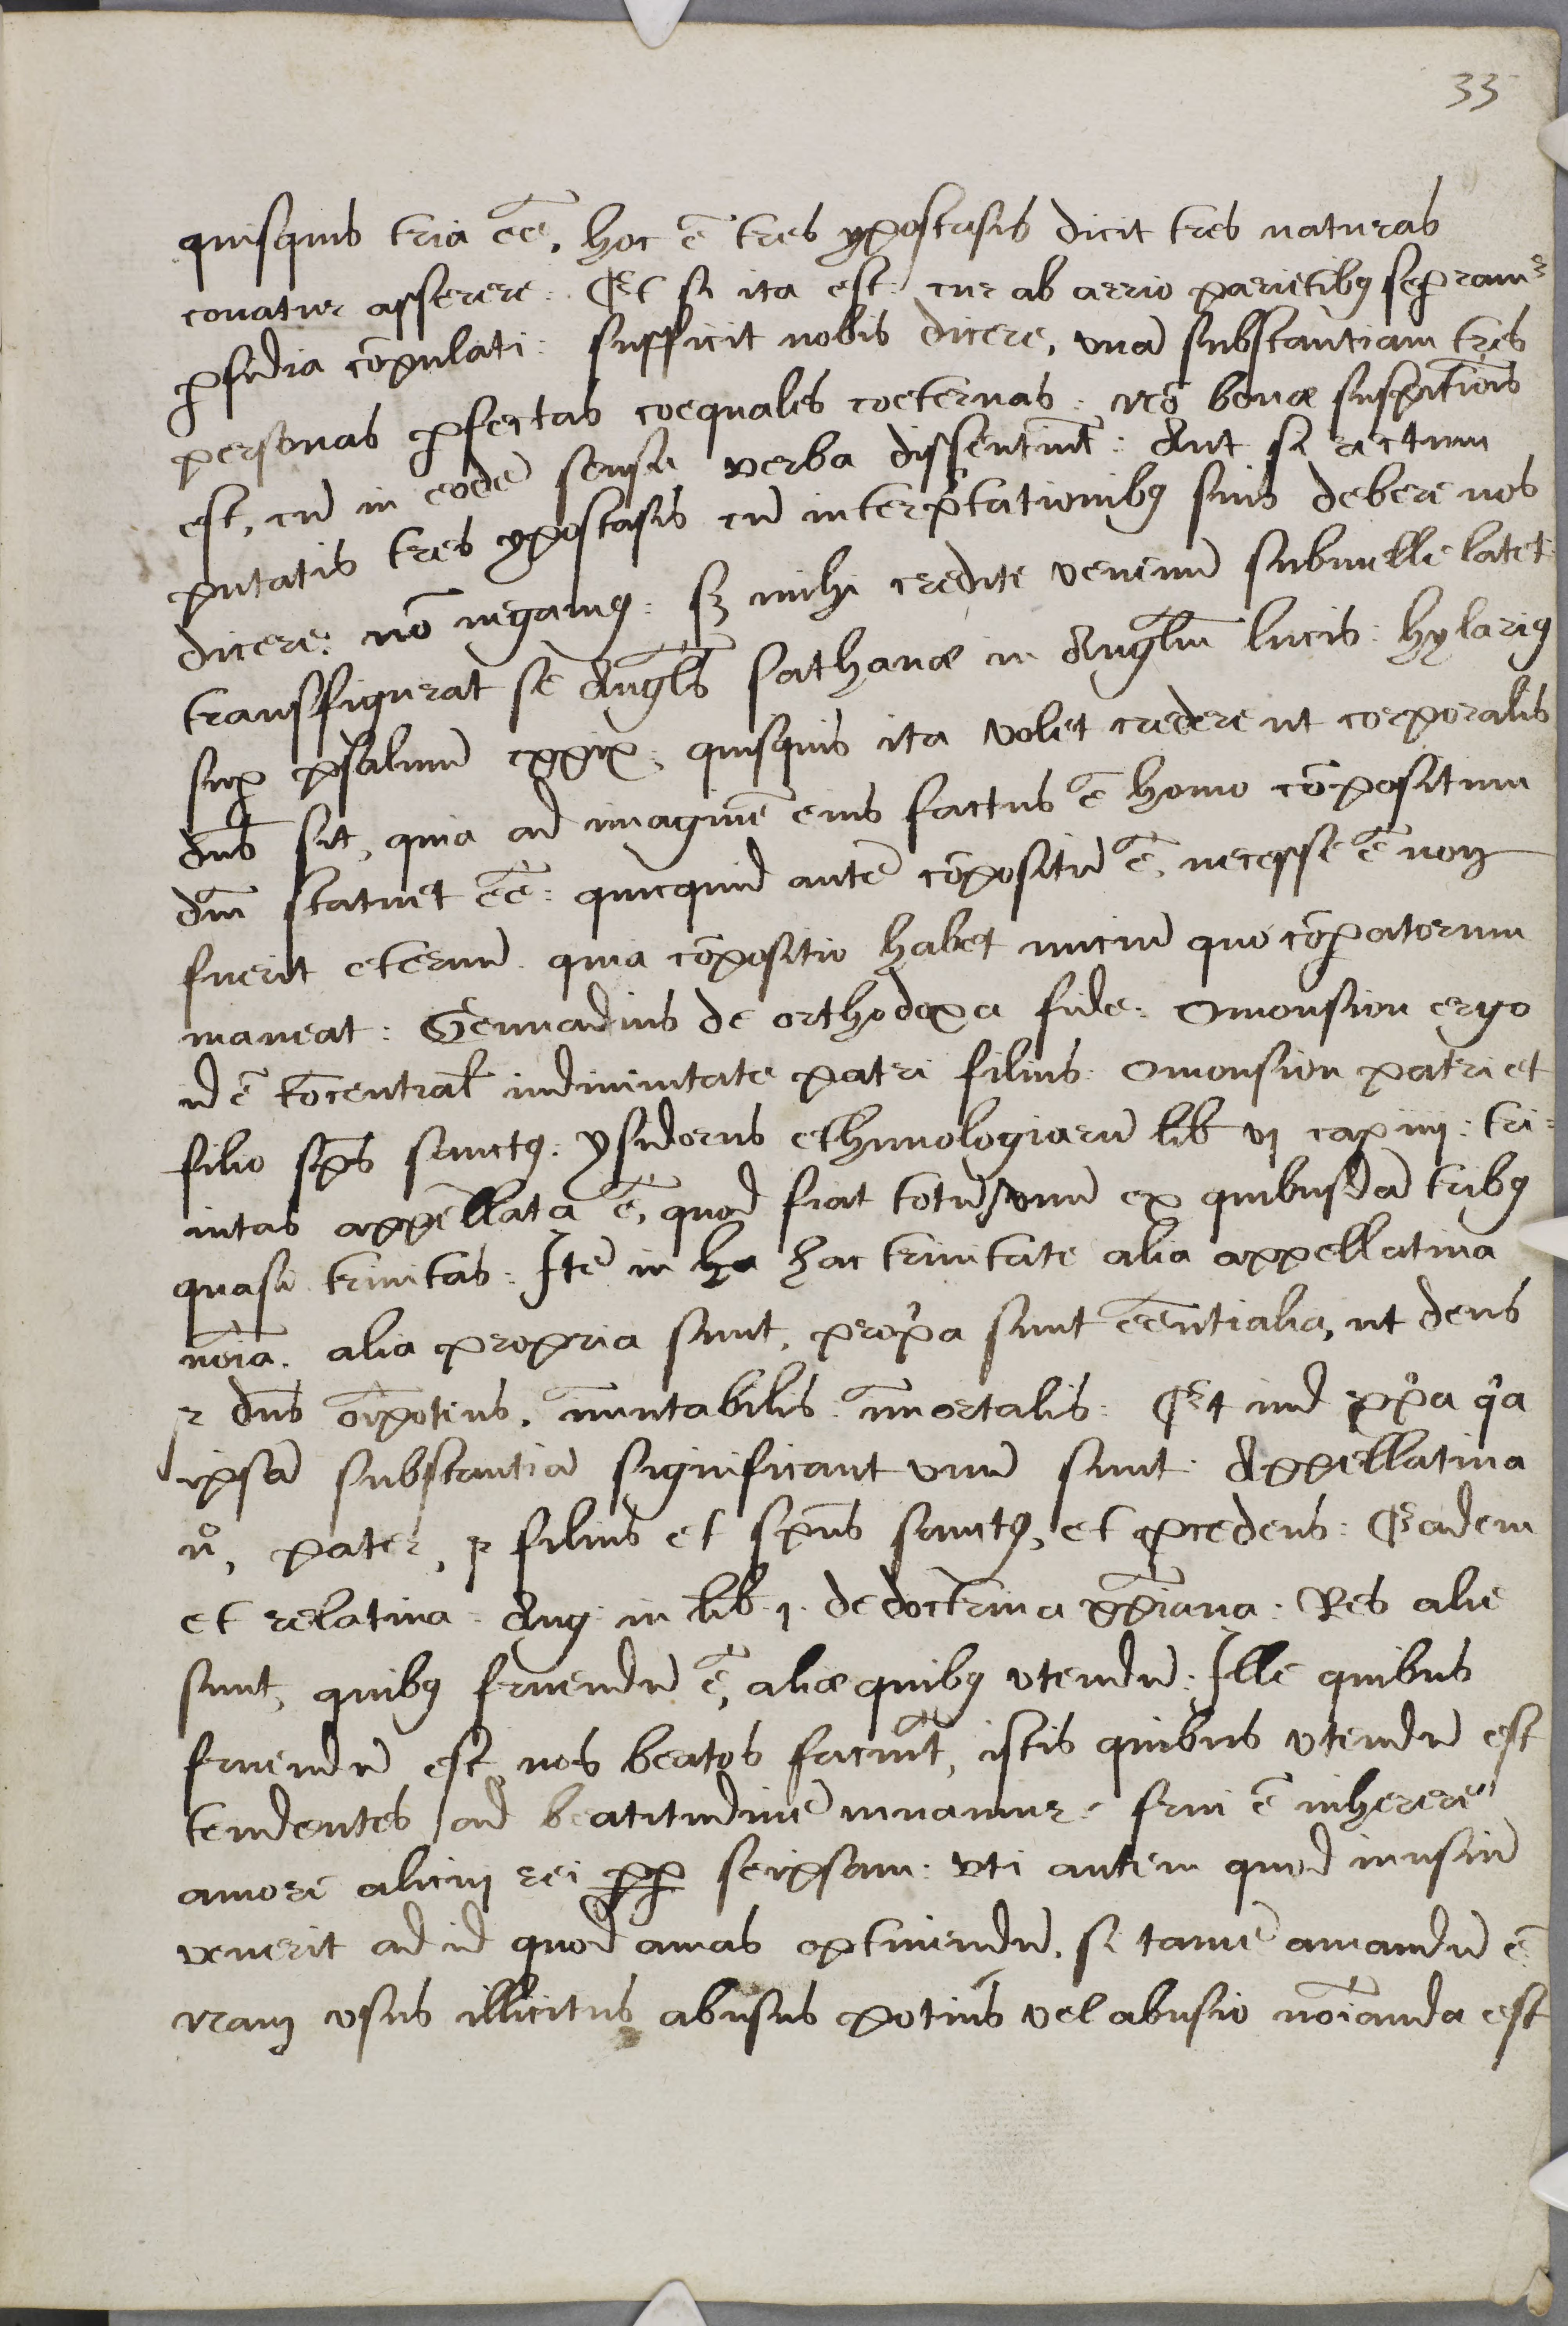 33
quisquis tria eē̄, hoc ē tres ypostasis dicit tres naturas
conatur asserere: Et si ita est: cur ab arrio parietibꝯ seꝑramᷣ
ꝑfidia cōpulati: sufficit nobis dicere, unā substantiam tres
personas ꝑfectas coequales coeternas: nō bonæ suspitiōis
est, cū in eodē sensu verba dissentiūt: Aut si rectum
putatis tres ypostasis cū interp̄tationibꝯ suis debere nos
dicere: nō negamꝯ: sꝫ mihi credite venenū submelle latet:
transffigurat se Angl̄s Sathanæ in Angl̄m lucis: hylariꝯ
suꝑ psalmū cxxix: quisquis ita volet credere ut corporalis
dn̄s sit, quia ad imaginē eius factus ē homo cōpositum
dn̄m statuet eē̄: quicquid autē cōpositū ē, necesse ē non
fuerit eternū quia cōpositio habet iniciū quo cōꝑatorum
maneat: Gennadius de orthodoxa fide: Omousion ergo
id ē cōcentral̄ indiuinitate patri filius. Omousion patri et
filio sp̄s sanctꝯ: ysidorus ethimologiarū lib vj cap iiij: tri-
nitas appellata ē, quod fiat totū/unū ex quibusdā tribꝯ
quasi trinitas: Itē in ha hac trinitate alia appellatiua
noīa. alia propria sunt, prop̄a sunt eēntialia, ut deus
ꝛ dn̄s oīpotēns, īmutabilis. īmortalis: Et inđ pp̄a qͥa
ipsā substantiā significant unū sunt. Appellatiua
v̊, pater, ꝛ filius et sp̄us sanctꝯ, et ꝓcedens: Eadem
et relatiua: Aug: in lib. 1. de doctrina xp̄iana: Res alie
sunt, quibꝯ fruendū ē, aliæ quibꝯ utendū: Ille quibus
fruendū est nos beatos faciūt, istis quibus utendū est
tendentes / ad beatitudinē iuuamur: frui ē inherere
amore alicuj rei ꝓꝑ seipsam: uti autem quod inusū
venerit ad id quod amas optinendū, si tamē amandū ē
nam usus illicitus abusus potius vel abusio noīanda est